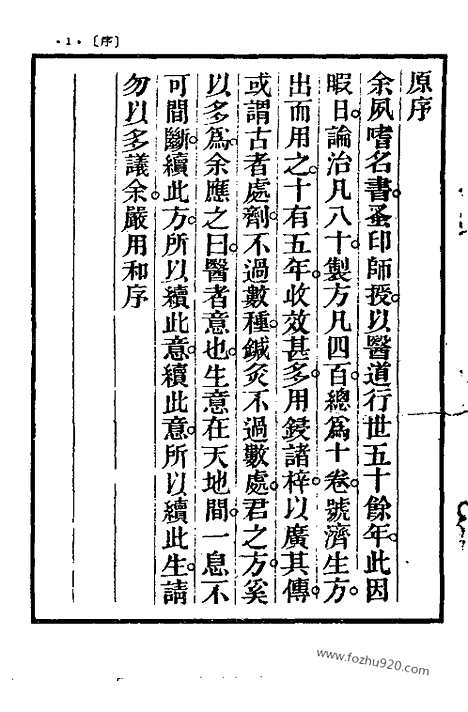 ·1·〔序〕
原序
余夙嗜名書。蚤印師授。以醫道行世五十餘年。此因
暇日。論治凡八十。製方凡四百。總爲十卷。號濟生方。
出而用之。十有五年。收效甚多。用鋟諸梓。以廣其傳。
或謂古者處劑。不過數種。鍼灸不過數處。君之方奚
以多爲。余應之曰。醫者意也。生意在天地間。一息不
可間斷。續此方。所以續此意。續此意。所以續此生。請
勿以多議余。嚴用和序
www.fozhu920.com